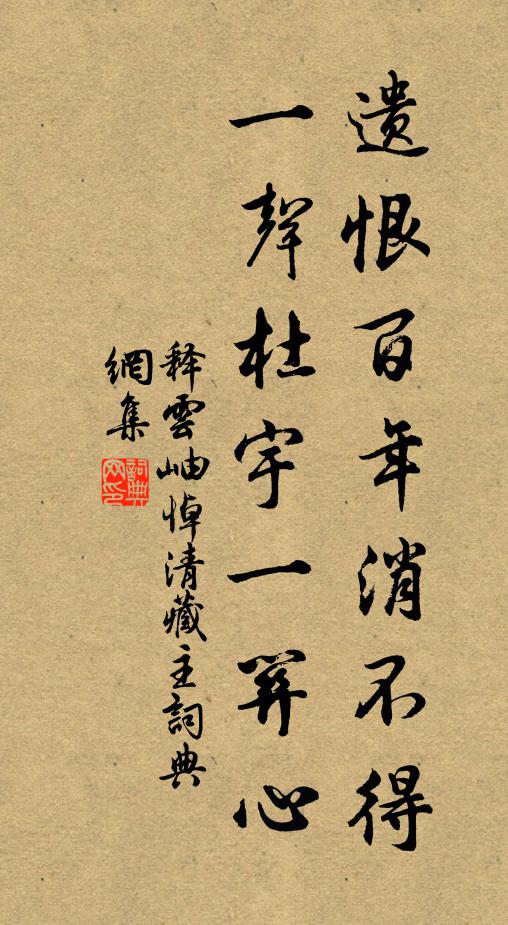 遗恨百年消不得
一聲杜宇一篣心
释雲岫悼清藏主詞典
網集
詞典網印